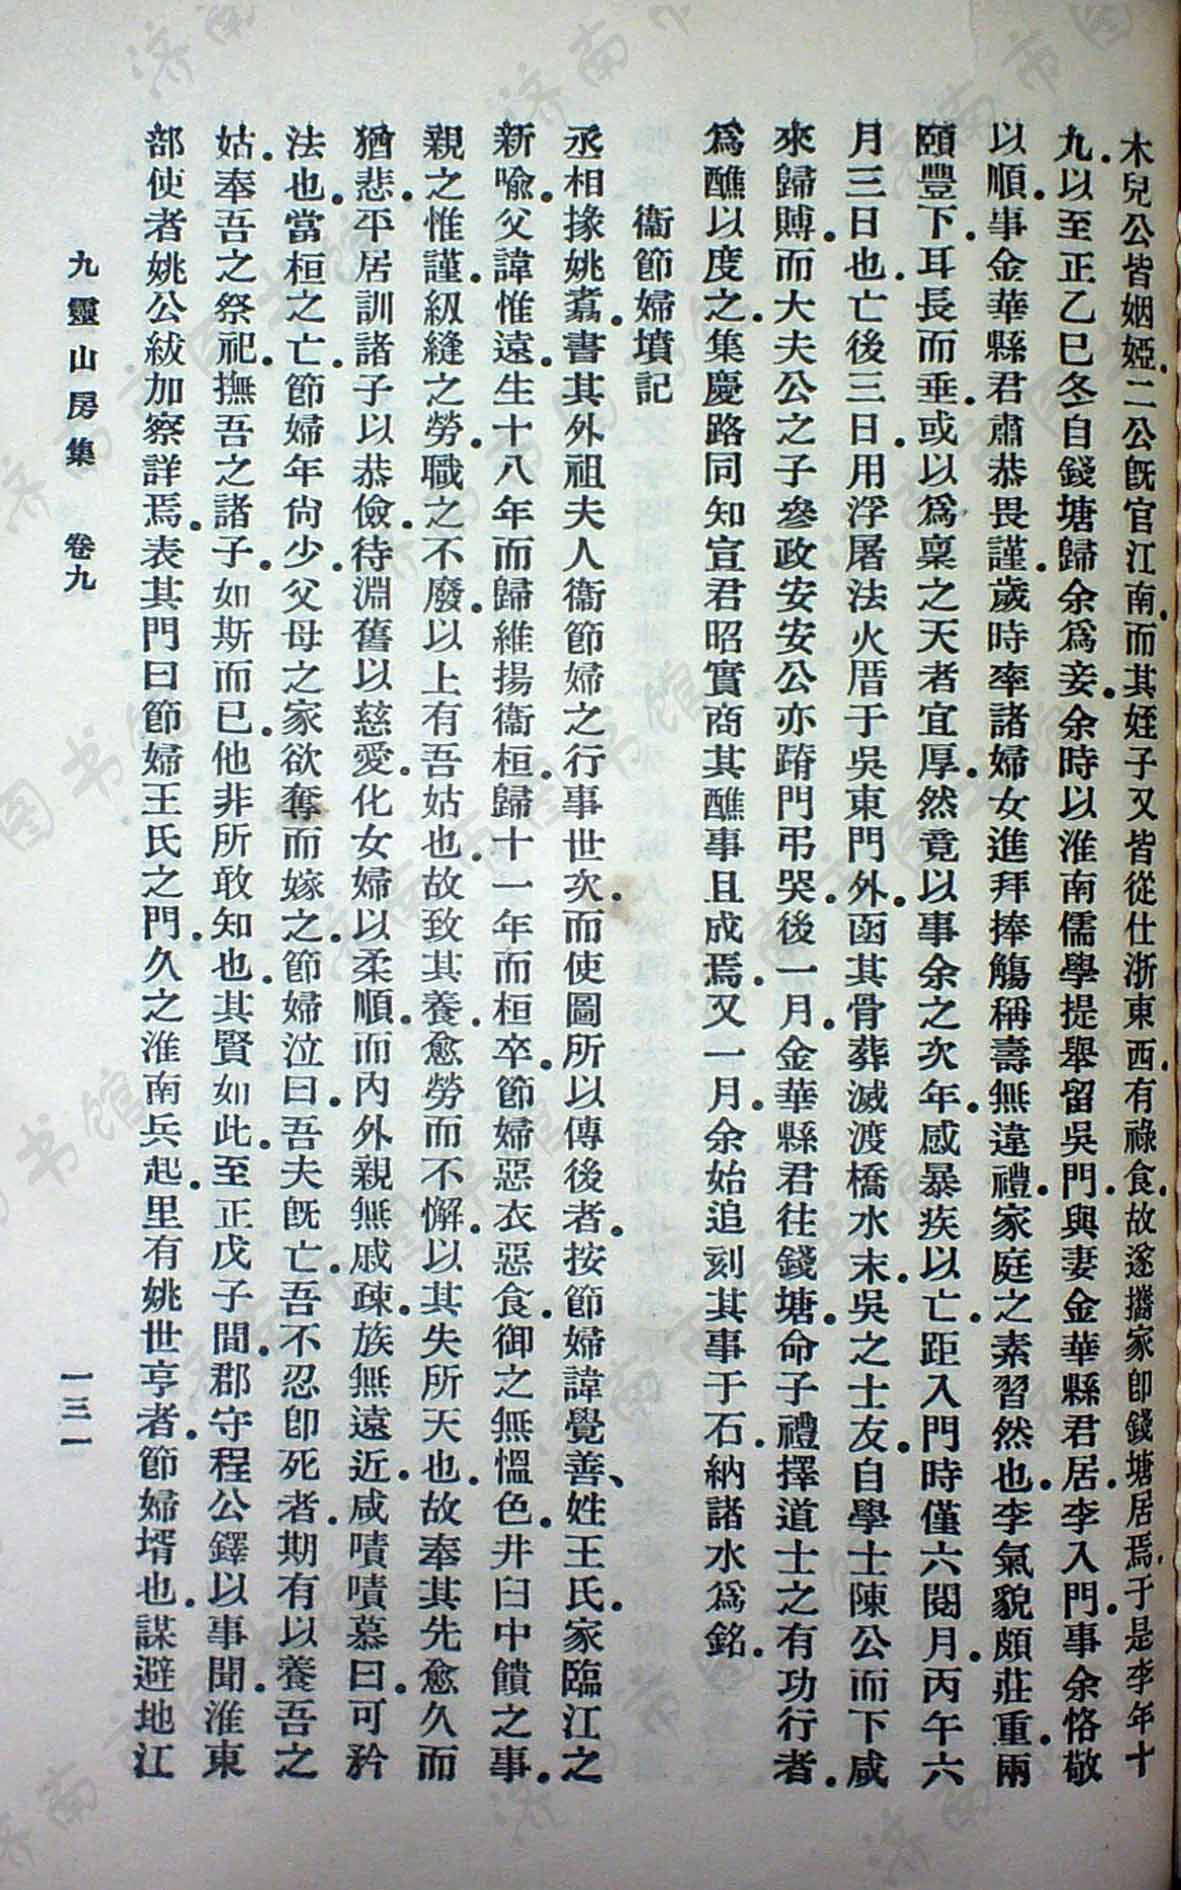 木兒公皆姻婭二公旣官江南而其姪子又皆從仕浙東西有祿食故遂攜家卽錢塘居焉于是李年十
九以至正乙巳冬自錢塘歸余爲妾余時以淮南儒學提舉留吳門與妻金華縣君居李入門事余恪敬
以順事金華縣君肅恭畏謹歲時率諸婦女進拜捧觴稱壽無違禮家庭之素習然也李氣貌頗莊重兩
頤豐下耳長而垂或以爲稟之天者宜厚然竟以事余之次年感暴疾以亡距入門時僅六閱月丙午六
月三日也亡後三日用浮屠法火厝于吳東門外函其骨葬滅渡橋水末吳之士友自學士陳公而下咸
來歸賻而大夫公之子參政安安公亦躋門弔哭後一月金華縣君往錢塘命子禮擇道士之有功行者
爲醮以度之集慶路同知宣君昭實商其醮事且成焉又一月余始追刻其事于石納諸水爲銘
衞節婦墳記
丞相掾姚䎖書其外祖夫人衞節婦之行事世次而使圖所以傳後者按節婦諱覺善姓王氏家臨江之
新喩父諱惟遠生十八年而歸維揚衞桓歸十一年而桓卒節婦惡衣惡食御之無慍色井臼中饋之事
親之惟謹紉縫之勞職之不廢以上有吾姑也故致其養愈勞而不懈以其失所天也故奉其先愈久而
猶悲平居訓諸子以恭儉待淵舊以慈愛化女婦以柔順而內外親無戚疎族無遠近咸嘖嘖慕曰可矜
法也當桓之亡節婦年尙少父母之家欲奪而嫁之節婦泣曰吾夫旣亡吾不忍卽死者期有以養吾之
姑奉吾之祭祀撫吾之諸子如斯而已他非所敢知也其賢如此至正戊子間郡守程公鐸以事聞淮東
部使者姚公紱加察詳焉表其門曰節婦王氏之門久之淮南兵起里有姚世亨者節婦壻也謀避地江
九靈山房集 卷九
一三一